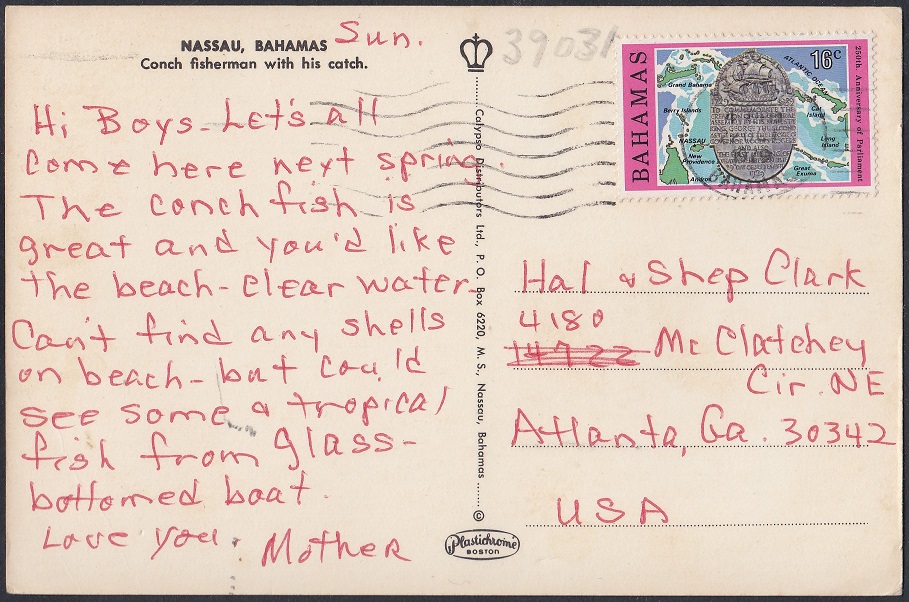 NASSAU, BAHAMAS
Conch fisherman with his catch.
Sun.
Hi Boys - Let's all
come here next spring.
The conch fish is
great and you'd like
the beach - clear water.
Can't find any shells
on beach - but could
see some & tropical
fish from glass-
bottomed boat.
Love you. Mother
Calypso Distributors Ltd., P. O. Box 6220, M. S., Nassau, Bahamas
©
Plastichrome
BOSTON
39031
BAHAMAS
16c
250th Anniversary of Parliament
ATLANTIC OCEAN
Grand Bahama
Berry Islands
NASSAU
New Providence
Andros
Cat Island
Long Island
Great Exuma
Hal & Shep Clark
4180
14722 McClatchey
Cir. NE
Atlanta, Ga. 30342
USA